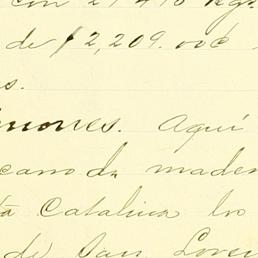 con 27 410 Kgr
de $2,209.00c.
s.
mones. Aquí
cano da mader
ta Catalina lo
de San Loren